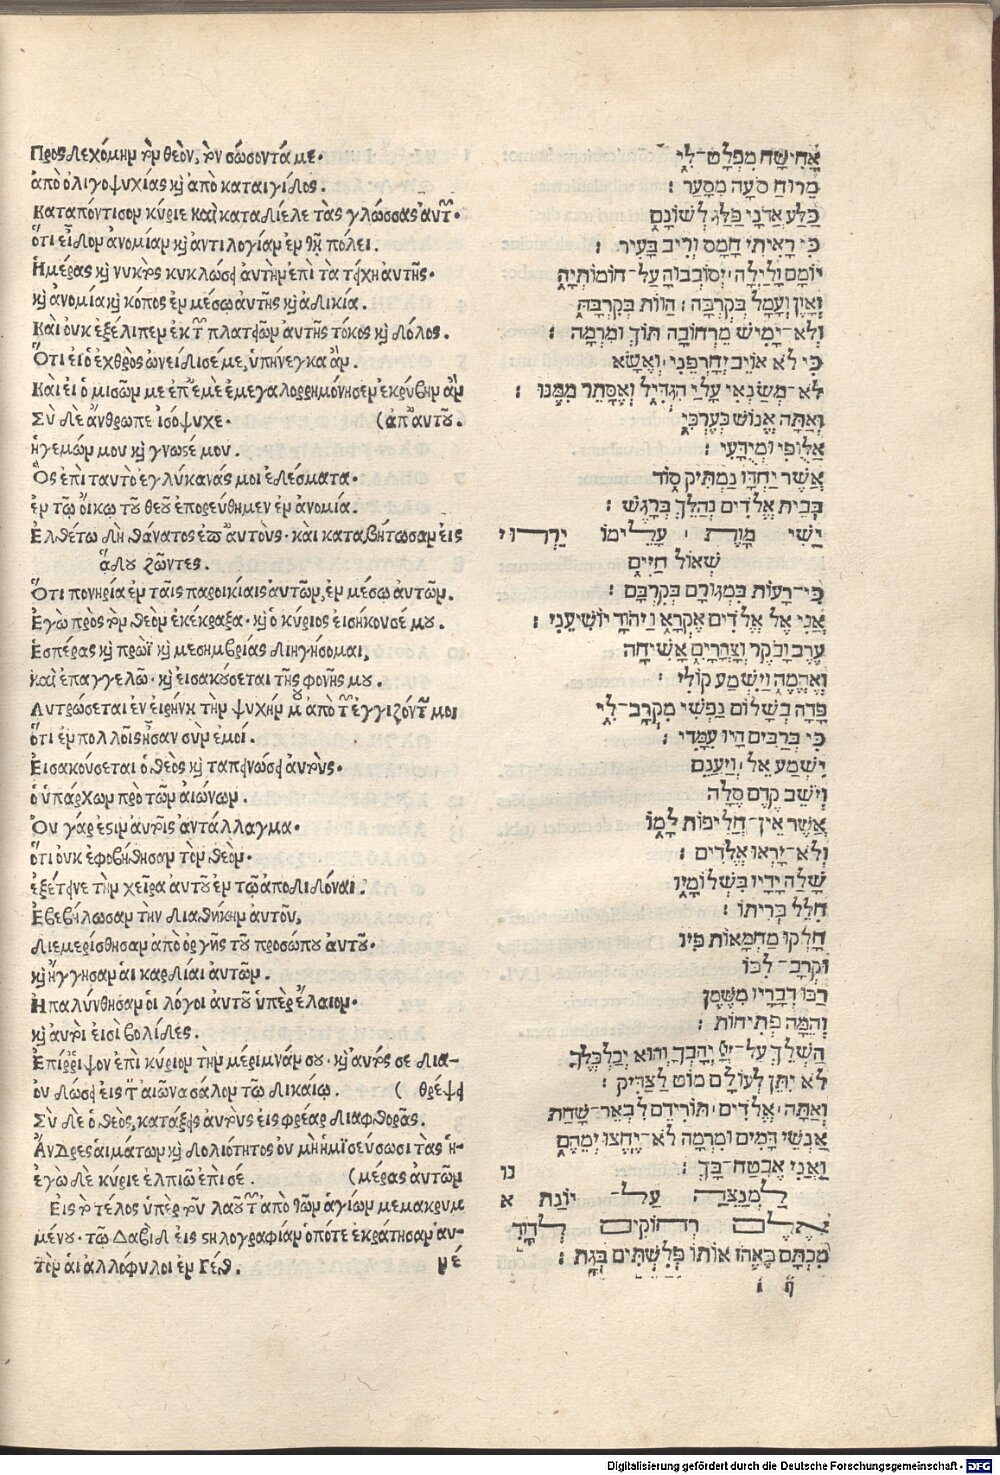 Προσδεχόμην τὸν θεὸν, τὸν σώσοντά με·
ἀπὸ ὀλιγοψυχίας καὶ ἀπὸ καταιγίδος.
Καταπόντισον κύριε καὶ καταδίελε τὰς γλώσσας αὐτῶν·
ὅτι εἶδον ἀνομίαν καὶ ἀντιλογίαν ἐν τῇ πόλει.
Ἡμέρας καὶ νυκτὸς κυκλώσει αὐτὴν ἐπὶ τὰ τείχη αὐτῆς·
καὶ ἀνομία καὶ κόπος ἐν μέσῳ αὐτῆς καὶ ἀδικία.
Καὶ οὐκ ἐξέλιπεν ἐκ τῶν πλατειῶν αὐτῆς τόκος καὶ δόλος.
Ὅτι εἰ ὁ ἐχθρὸς ὠνείδισέ με, ὑπήνεγκα ἄν.
Καὶ εἰ ὁ μισῶν με ἐπ' ἐμὲ ἐμεγαλορρημόνησεν ἐκρύβην ἂν
Σὺ δὲ ἄνθρωπε ἰσόψυχε· (ἀπ' αὐτοῦ.
ἡγεμών μου καὶ γνωσέ μου.
Ὃς ἐπιταυτὸ ἐγλύκανάς μοι ἐδέσματα·
ἐν τῷ οἴκῳ τοῦ θεοῦ ἐπορεύθημεν ἐν ἀνομία.
Ἐλθέτω δὴ θάνατος ἐπ' αὐτούς· καὶ καταβήτωσαν εἰς
ᾅδου ζῶντες.
Ὅτι πονηρία ἐν ταῖς παροικίαις αὐτῶν, ἐν μέσῳ αὐτῶν.
Ἐγὼ πρὸς τὸν θεὸν ἐκέκραξα· καὶ ὁ κύριος εἰσήκουσέ μου.
Ἑσπέρας καὶ πρωῒ καὶ μεσημβρίας διηγήσομαι,
καὶ ἐπαγγελῶ· καὶ εἰσακούσεται τῆς φονῆς μου
Λυτρώσεται ἐν εἰρήνῃ τὴν ψυχήν μου ἀπὸ τῶν ἐγγιζόντων μοι
ὅτι ἐν πολλοῖς ἦσαν σὺν ἐμοί.
Εἰσακούσεται ὁ θεὸς καὶ ταπεινώσει αὐτούς·
ὁ ὑπάρχων πρὸ τῶν αἰώνων.
Οὐ γάρ ἐστιν αὐτοῖς ἀντάλλαγμα·
ὅτι οὐκ ἐφοβήθησαν τὸν θεόν·
ἐξέτεινε τὴν χεῖρα αὐτοῦ ἐν τῷ ἀποδιδόναι.
Ἐβεβήλωσαν τὴν διαθήκην αὐτοῦ,
διεμερίσθησαν ἀπὸ ὀργῆς τοῦ προσώπου αὐτοῦ·
καὶ ἤγγησαν αἱ καρδίαι αὐτῶν.
Ἡπαλύνθησαν οἱ λόγοι αὐτοῦ ὑπὲρ ἔλαιον·
καὶ αὐτοί εἰσι βολίδες.
Ἐπίρριψον ἐπὶ κύριον τὴν μέριμνάν σου· καὶ αὐτός σε δια-
οὐ δώσει εἰς τὸν αἰῶνα σάλον τῶ δικαίῳ. ( θρέψει
Σὺ δὲ ὁ θεὸς, κατάξεις αὐτοὺς εἰς φρέαρ διαφθορᾶς.
Ἄνδρες αἱμάτων καὶ δολιότητος οὐ μὴ ἡμισεύσωσι τὰς ἡ-
ἐγὼ δὲ κύριε ἐλπιῶ ἐπί σέ. (μέρας αὐτῶν
Εἰς τὸ τέλος ὑπὲρ τοῦ λαοῦ τοῦ ἀπὸ τῶν ἁγίων μεμακρυμ
μένου· τῷ Δαβὶδ εἰς στηλογραφίαν ὁπότε ἐκράτησαν αὐ-
τὸν οἱ ἀλλόφυλοι ἐν Γέθ. μέ
אָחִישָׁה מִפְלָט־לִי
מֵרוּחַ סֹעָה מִסָּעַר :
בַּלַּע אֲדֹנָי פַּלַּג לְשׁוֹנָם
כִּי רָאִיתִי חָמָס וְרִיב בָּעִיר :
יוֹמָם וָלַיְלָה יְסוֹבְבוּהָ עַל־חוֹמוֹתֶיהָ
וְאָוֶן וְעָמָל בְּקִרְבָּהּ : הַוּוֹת בְּקִרְבָּהּ
וְלֹא־יָמִישׁ מֵרְחוֹבָהּ תּוֹךְ וּמִרְמָה :
כִּי לֹא אוֹיֵב יְחָרְפֵנִי וְאֶשָּׂא
לֹא־מְשַׂנְאִי עָלַי הִגְדִּיל וְאֶסָּתֵר מִמֶּנּוּ :
וְאַתָּה אֱנוֹשׁ כְּעֶרְכִּי
אַלּוּפִי וּמְיֻדָּעִי :
אֲשֶׁר יַחְדָּו נַמְתִּיק סוֹד
בְּבֵית אֱלֹדִים נְהַלֵּךְ בְּרָגֶשׁ :
יַשִּׁי מָוֶת עָלֵימוֹ יֵרְדוּ
שְׁאוֹל חַיִּים
כִּי־רָעוֹת בִּמְגוּרָם בְּקִרְבָּם :
אֲנִי אֶל אֱלֹדִים אֶקְרָא וַיהֹוָד יוֹשִׁיעֵנִי :
עֶרֶב וָבֹקֶר וְצָהֳרַיִם אָשִׂיחָה
וְאֶהֱמֶה וַיִּשְׁמַע קוֹלִי :
פָּדָה בְשָׁלוֹם נַפְשִׁי מִקְּרָב־לִי
כִּי בְרַבִּים הָיוּ עִמָּדִי :
יִשְׁמַע אֵל וְיַעֲנֵם
וְיֹשֵׁב קֶדֶם סֶלָה
אֲשֶׁר אֵין־חֲלִיפוֹת לָמוֹ
וְלֹא־יָרְאוּ אֱלֹדִים :
שָׁלַח יָדָיו בִּשְׁלוֹמָיו
חִלֵּל בְּרִיתוֹ :
חָלְקוּ מַחְמָאוֹת פִּיו
וּקְרָב־לִבּוֹ
רַכּוּ דְבָרָיו מִשֶּׁמֶן
וְהֵמָּה פְתִיחוֹת :
הַשְׁלֵךְ עַל־ יְהָבְךָ וְהוּא יְכַלְכְּלֶךָ
לֹא יִתֵּן לְעוֹלָם מוֹט לַצַּדִּיק :
וְאַתָּה אֱלֹדִים תּוֹרִידֵם לִבְאֵר־שַׁחַת
אַנְשֵׁי דָמִים וּמִרְמָה לֹא־יֶחֱצוּ יְמֵהֶם
וַאֲנִי אֶבְטַח־בָּךְ : נו
לַמְנַצֵּחַ עַל־ יוֹנַת א
אֵלֶם רְחוֹקִים לְדָוִד
מִכְתָּם בֶּאֱחֹז אוֹתוֹ פְלִשְׁתִּים בְּגַת :
Digitalisierung gefördert durch die Deutsche Forschungsgemeinschaft - DFG